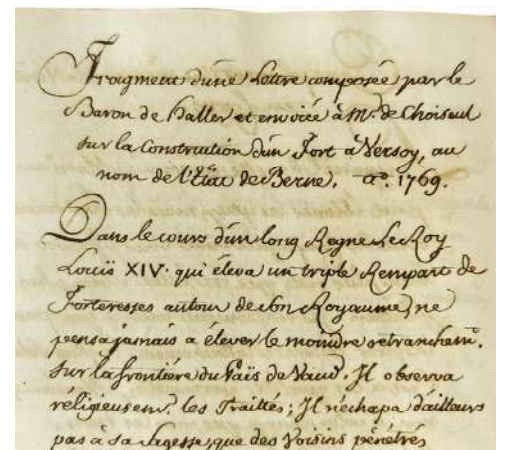 Fragment d'une Lettre composée par le
Baron de Haller et envoiée à Mr. de Choiseul
sur la Construction d'un Fort a Versoy, au
nom de l'Etat de Berne. ao. 1769.
Dans le cours d'un long Regne Le Roy
Louis XIV. qui éleva un triple Rempart de
Forteresses autour de son Royaume, ne
pensa jamais a élever le moindre retranchemt.
sur la frontiére du Païs de Vaud. Il observa
réligieusemt. les Traittés; Il n'échapa d'ailleurs
pas à sa Sagesse, que des Voisins pénétrés